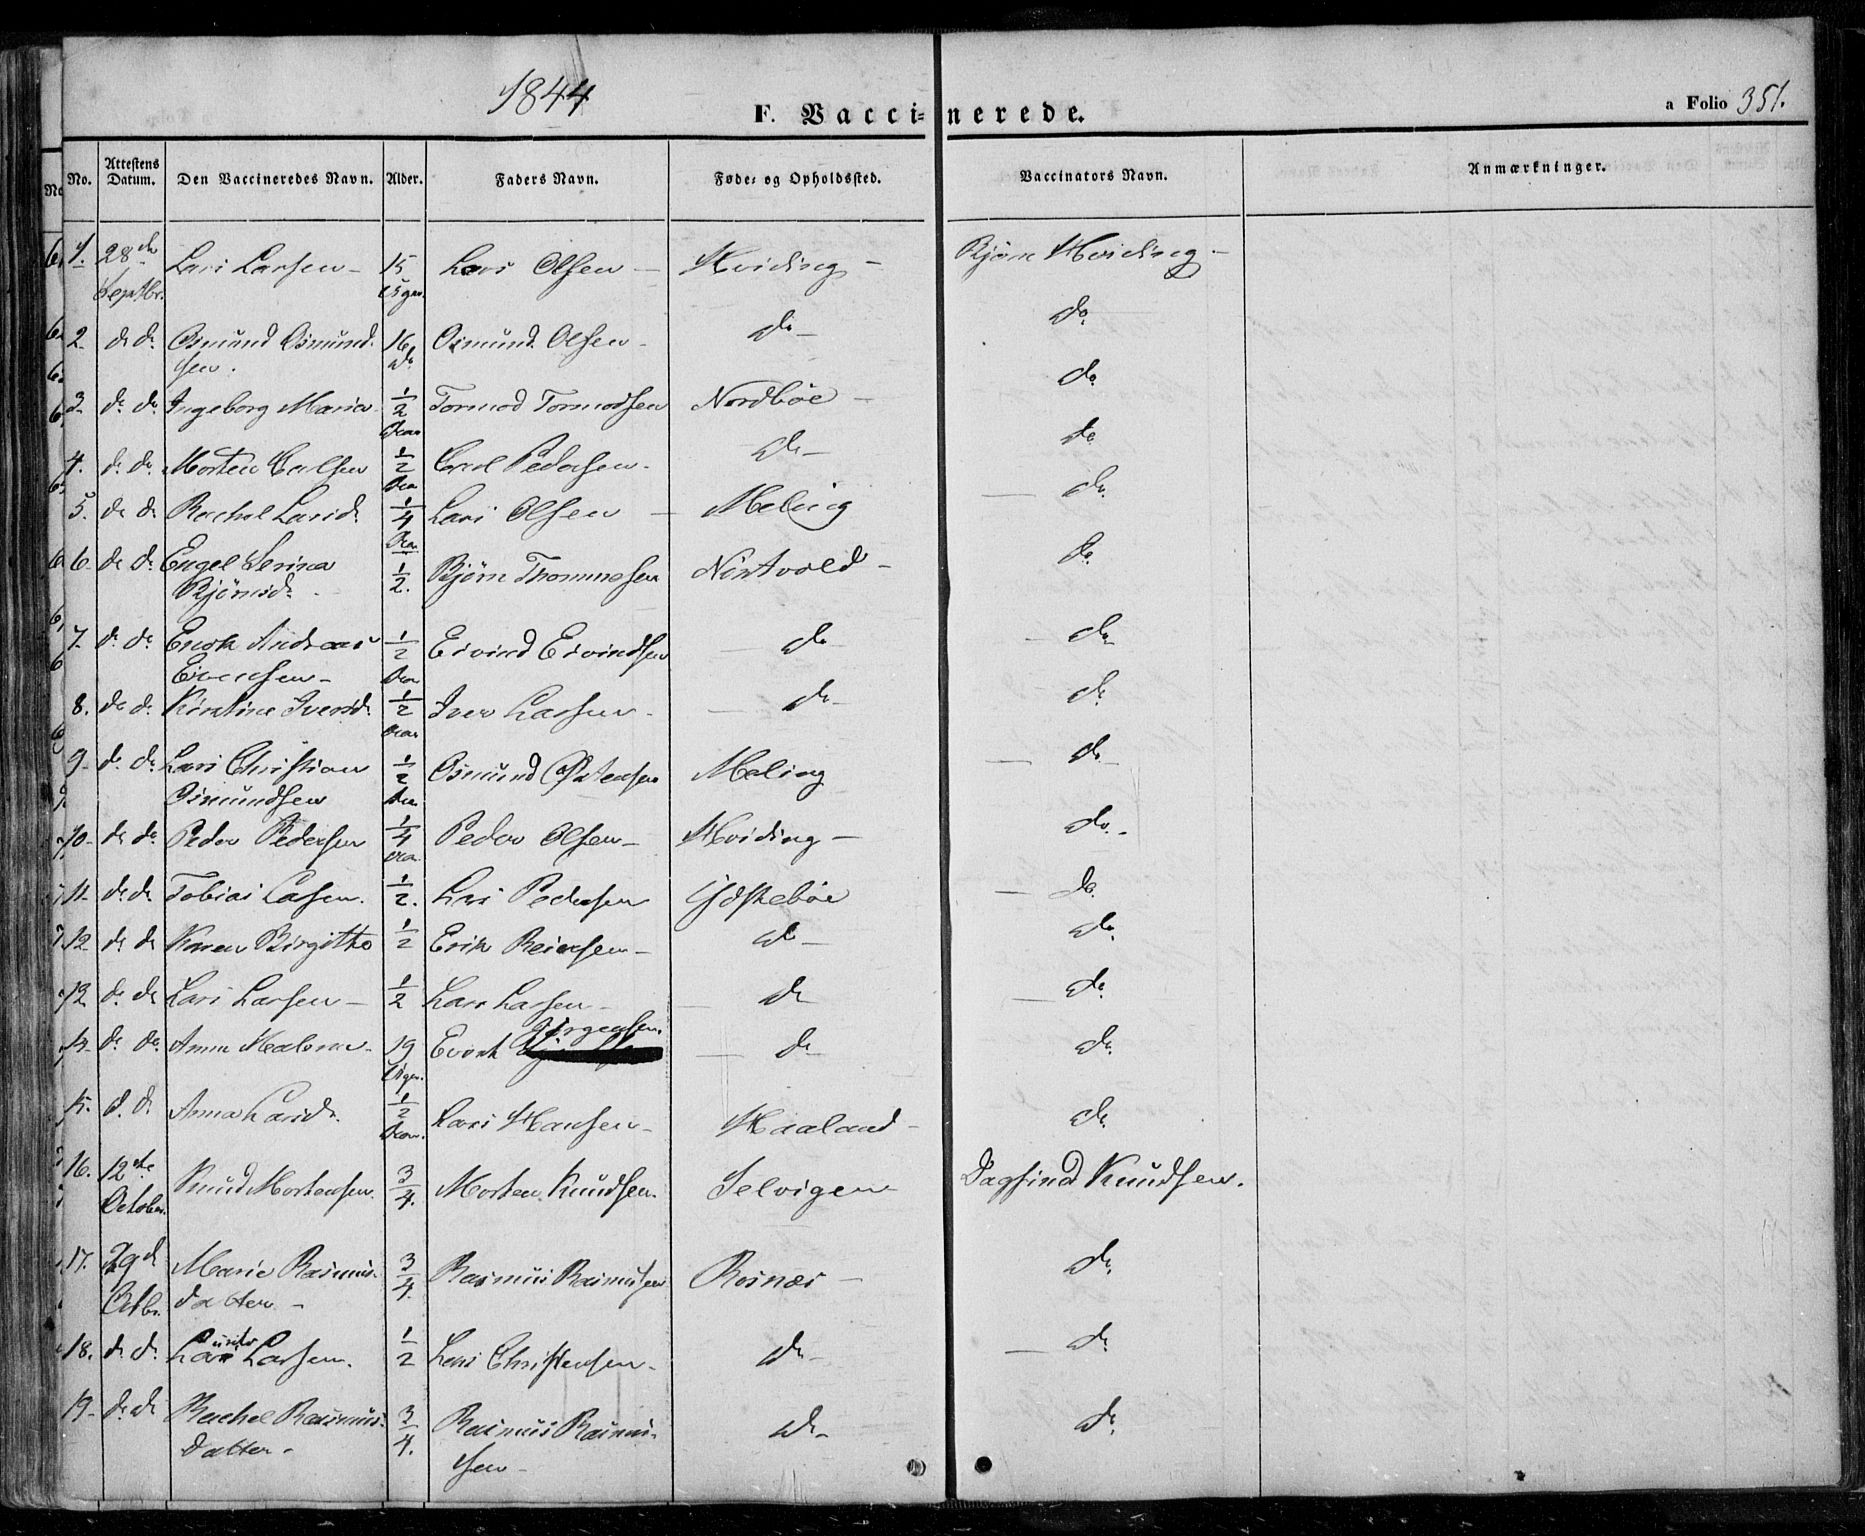 1844
F. Vaccinerede.
a Folio 351.
No. Attestens Datum. Den Vaccineredes Navn. Alder. Faders Navn. Føde- og Opholdssted. Vaccinators Navn. Anmærkninger.
1. 28de Septbr. Lars Larsen 15 Uger. Lars Olsen Hviding Bjørn Hviding
2. do do Osmund Osmundsen. 16 do Osmund Olsen do do
3. do do Ingeborg Maria 1/2 Aar Tormod Tormodsen Nordbøe do
4. do do Morten Carlsen 1/2 Aar Carl Pedersen do do
5. do do Rachel Larsd. 1/4 Aar Lars Olsen Meling do
6. do do Engel Serina Bjørnsd. 1/2. Bjørn Thommesen Nortvold do
7. do do Enok Andreas 1/2 Aar Eivind Eivindsen do do
8. do do Kirstine Iversd. 1/2 Aar Iver Larsen do do
9. do do Lars Christian Osmundsen 1/2 Aar Osmund Østensen Meling do
10. do do Peder Pedersen 1/4 Aar Peder Olsen Hviding do
11. do do Tobias Larsen. 1/2. Lars Pedersen Ydstebøe do
12. do do Karen Birgitha 1/2 Erik Reiersen do do
13. do do Lars Larsen 1/2 Lars Larsen do do
14. do do Anna Malena 19 Uger. Evert Jørgensen. do do
15. d. do Anna Larsd. 1/2 Aar. Lars Hansen Haaland do
16. 12te October. Knud Mortensen. 3/4. Morten Knudsen. Selvigen Dagfind Knudsen.
17. 29d Octbr. Marie Rasmusdatter 3/4. Rasmus Rasmusen Rosnæs do
18. do do Larsen. 1/2 Lars Christensen do do
19. do do Rachel Rasmusdatter 3/4. Rasmus Rasmussen do do